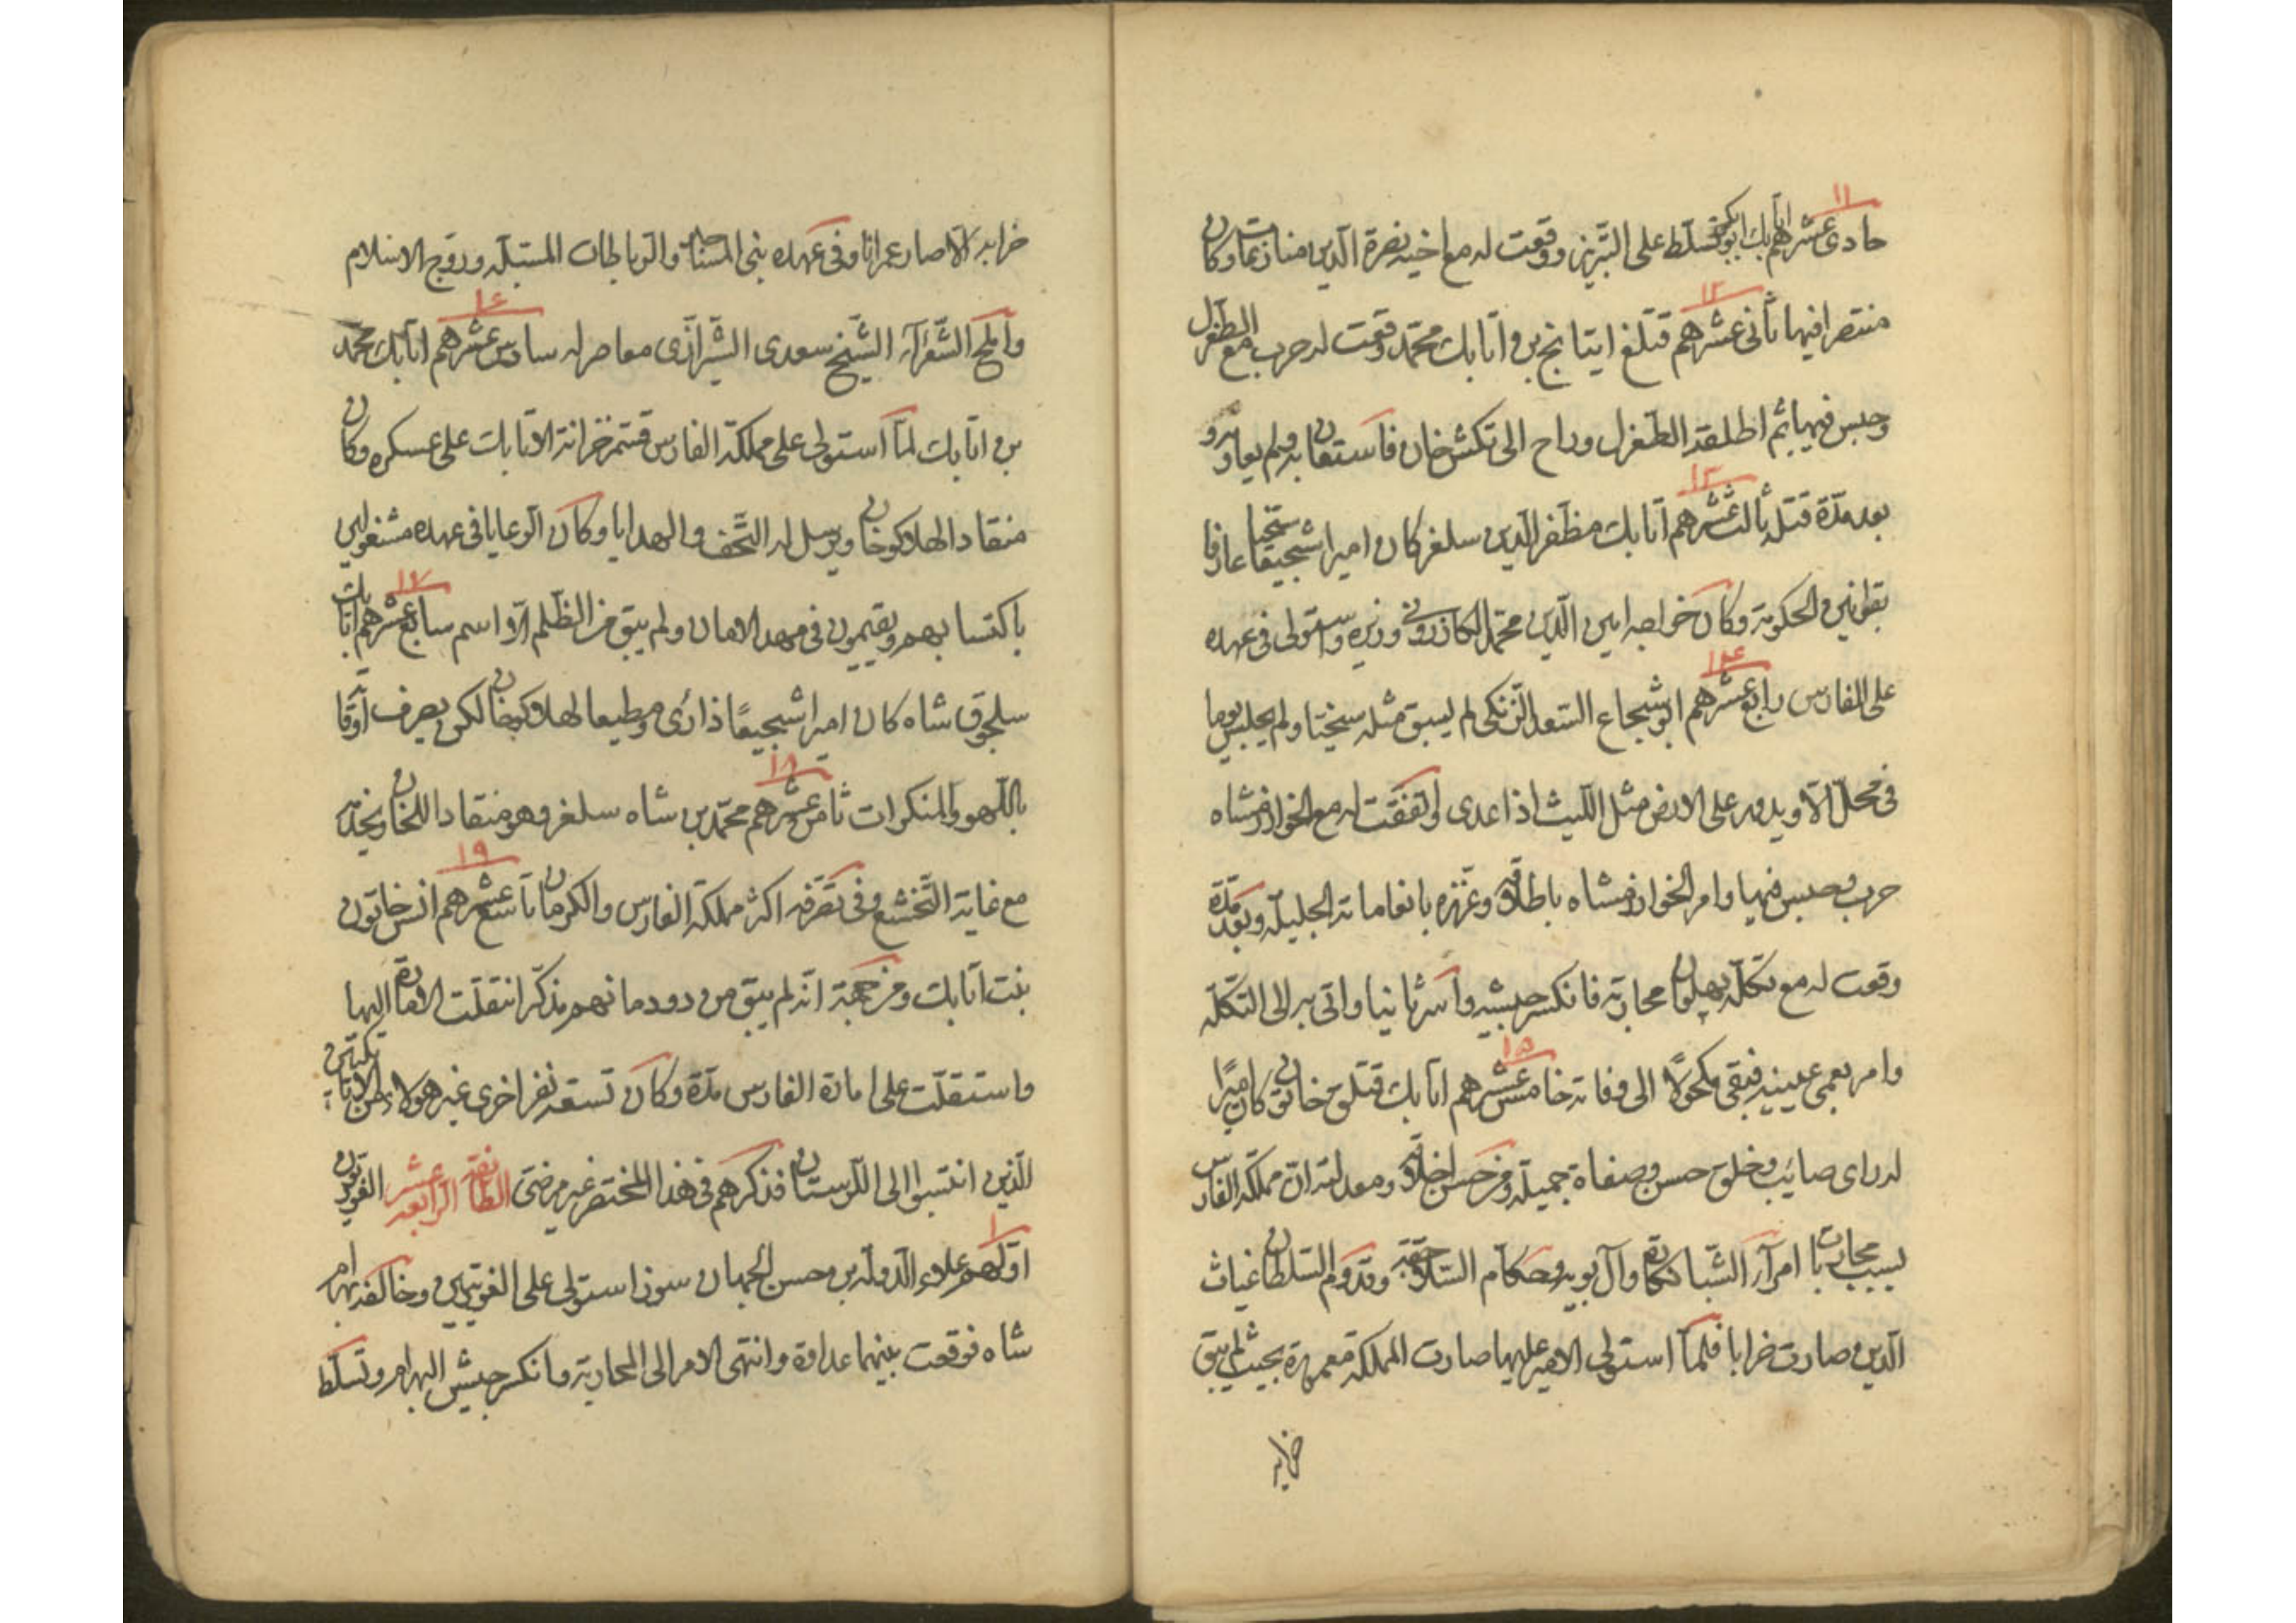 ١١
حادى عشرهم اتابك ابوبكر تسلط على التبريز ووقعت له مع اخيه نصرة الدين منازعات وكان
١٢
منتصرا فيها ثانى عشرهم قتلغ اينانج بن اتابك محمد وقعت له حرب مع الطغرل
وحبس فيها ثم اطلقه الطغرل وراح الى تكش خان فاستعان به ولم يعاونه و
١٣
بعد مدة قتل ثالث عشرهم اتابك مظفر الدين سلغر كان اميرا شجيعا سخيا عارفا
بقوانين الحكومة وكان خواجه امين الدين محمد الكازرونى وزيره واستولى فى عهده
١٤
على الفارس رابع عشرهم ابو شجاع السعد الزنكى لم يسبق مثله سخيا ولم يجلس يوما
فى محل الا ويدور على الارض مثل الليث اذا عدى اتفقت له مع الخوارزمشاه
حرب وحبس فيها وامر الخوارزمشاه باطلاقه وعززه بانعاماته الجليلة وبعد مدة
وقعت له مع تكله بهلوان محاربة فانكسر جيشه واسر ثانيا واتى به الى التكله
١٥
وامر بعمى عينيه فبقى مكحولا الى وفاته خامس عشرهم اتابك قتلق خان كان اميرا
له راى صايب وخلق حسن وصفاة جميلة ومن حسن اخلاقه ومعدلته ان مملكة الفارس
بسبب محاربات امرآء الشبانكاره وآل بويه وحكام السلاجقة وقدوم السلطان غياث
الدين صارت خرابا فلما استولى الامير عليها صارت المملكة معمورة بحيث لم يبق
خرابه
خرابه الا صار عمرانا وفى عهده بنى المستانة والرباطات المستبله وروج الاسلام
١٦
واملح الشعرآء الشيخ سعدى الشيرازى معاصر له سادس عشرهم اتابك محمد
بن اتابك لما استولى على مملكة الفارس قسم خزانة الاتابك على عسكره وكان
منقادا لهلاكو خان ويرسل له التحف والهدايا وكان الرعايا فى عهده مشغولين
١٧
باكتسابهم ويقيمون فى مهد الامان ولم يبق من الظلم الا اسم سابع عشرهم اتابك
سلجوق شاه كان اميرا شجيعا ذا رى ومطيعا لهلاكو خان لكن يصرف اوقاته
١٨
باللهو والمنكرات ثامن عشرهم محمد بن شاه سلغر وهو منقادا للخان ويخدمه
١٩
مع غاية التخشع وفى تصرفه اكثر مملكة الفارس والكرمان تاسع عشرهم انس خاتون
بنت اتابك ومن جهة انه لم يبق من دودمانهم مذكر انتقلت الامارة اليها
واستقلت على امارة الفارس مدة وكان تسعة نفر اخرى غير هولاء من الاتابكيين
الذين انتسبوا الى اللرستان فذكرهم فى هذا المختصر غير مرضى الطائفة الرابعة عشر الغوريون
١
اولهم علاء الدوله بن حسن الجهان سوز استولى على الغوريين وخالفه بهرام
شاه فوقعت بينهما عداوة وانتهى الامر الى المحاربة وانكسر جيش البهرام وتسلط